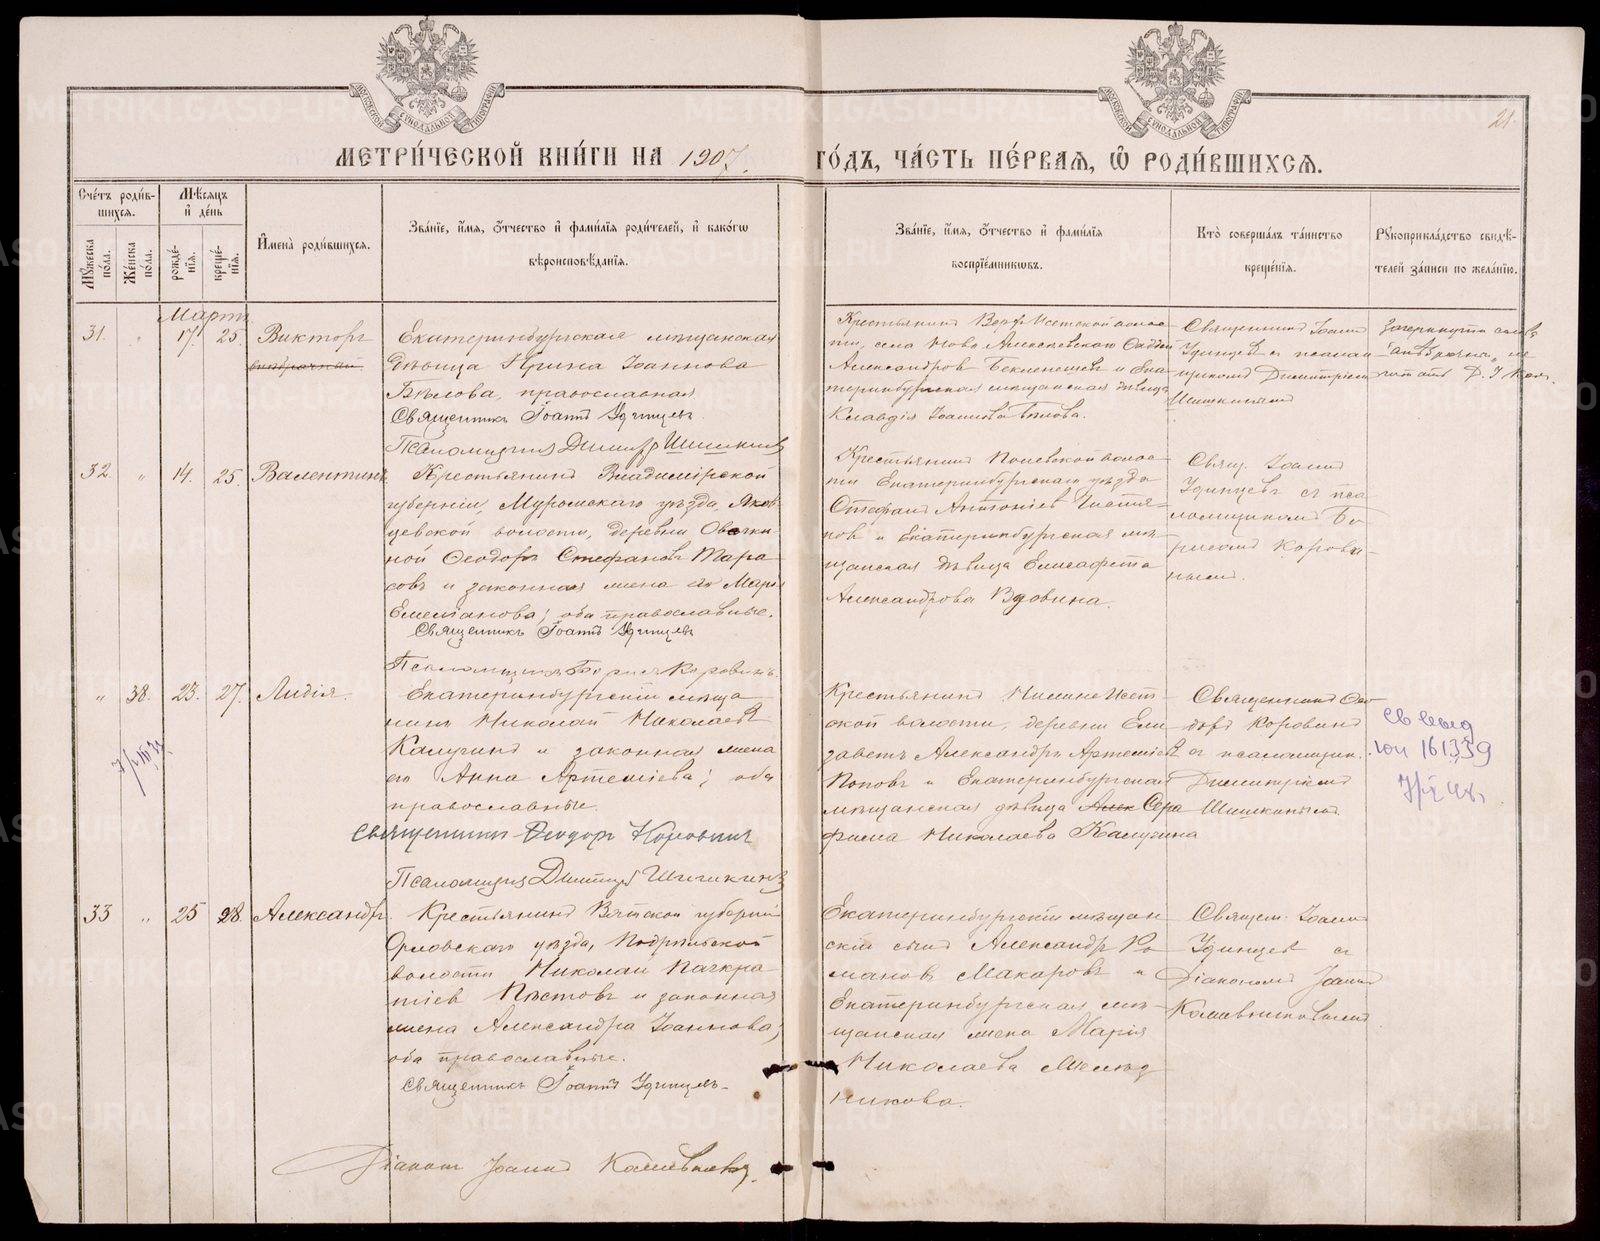 21.
МЕТРИ́ЧЕСКОЙ КНИ́ГИ НА 1907 ГО́ДЪ, ЧА́СТЬ ПЕ́РВАЯ, Ѡ РОДИ́ВШИХСЯ.
Сче́тъ роди́в-
шихся.
Мꙋ́жеска по́ла.
Же́нска по́ла.
Мѣ́сяцъ
и де́нь
рожде́-
нїя.
креще́-
нїя.
Имена̀ роди́вшихся.
Зва́нїе, и́мя, ѻ́тчество и фами́лїя роди́телей, и како́гѡ
вѣроисповѣ́данїя.
Зва́нїе, и́мя, ѻ́тчество и фами́лїя
воспрїе́мникѡвъ.
Кто̀ соверша́лъ та́инство
креще́нїя.
Рꙋкоприкла́дство свидѣ́-
телей за́писи по жела́нїю.
Мартъ
31. " 17. 25. Викторъ
внѣбрачный
Екатеринбургская мѣщанская
дѣвица Ирина Іоаннова
Бѣлова, православная
Священникъ Іоаннъ Удинцевъ
Псаломщикъ Димитр Шишкинъ
Крестьянинъ Верх-Исетской волос-
ти, села Ново Алексеевскаго
Александров Бекленещев и Ека-
теринбургская мѣщанская дѣвица
Клавдія Іоаннова Бѣлова.
Священникъ Іоаннъ
Удинцевъ съ псалом
щикомъ Димитріемъ
Шишкинымъ
Зачеркнутое слово
"внѣбрачный" не
читать
32. " 14. 25. Валентинъ
Крестьянинъ Владимірской
губерніи, Муромскаго уѣзда, Яков
цевской волости, деревни Овечки-
ной Ѳеодоръ Стефановъ Тара
совъ и законная жена его Марія
Емеліанова; оба православные.
Священникъ Іоаннъ Удинцевъ
Псаломщикъ Борисъ Коровинъ
Крестьянинъ Полевской волос-
ти Екатеринбургскаго уѣзда
Стефанъ Антоніев Чистя-
ков и Екатеринбургская мѣ-
щанская дѣвица Елисавета
Александрова Вдовина.
Свящ. Іоаннъ
Удинцевъ съ пса
ломщикомъ Бо
рисомъ Корови-
нымъ.
" 38. 23. 27. Лидія.
Екатеринбургскій мѣща
нинъ Николай Николаевъ
Калугинъ и законная жена
его Анна Артеміева; оба
православные.
Священникъ Ѳеодоръ Коровинъ
Псаломщикъ Димитрій Шишкинъ
Крестьянинъ Нижне Исет-
ской волости, деревни Ели
заветъ Александръ Артеміевъ
Поповъ и Екатеринбургская
мѣщанская дѣвица Алек Сера
фима Николаева Калугина
Священникъ Ѳео
доръ Коровинъ
съ псаломщик.
Димитріемъ
Шишкинымъ
33 " 25 28. Александръ.
Крестьянинъ Вятской губерніи
Орловскаго уѣзда, Подрѣльской
волости Николай Панкра
тіев Пѣстовъ и законная
жена Александра Іоаннова;
оба православные.
Священникъ Іоаннъ Удинцевъ
Діаконъ Іоаннъ Кошевниковъ.
Екатеринбургскій мѣщан
скій сынъ Александръ Ро
мановъ Макаровъ и
Екатеринбургская мѣ-
щанская жена Марія
Николаева Мельд
никова.
Священ. Іоаннъ
Удинцевъ съ
Діакономъ Іоанн
Кошевниковымъ
METRIKI.GASO-URAL.RU